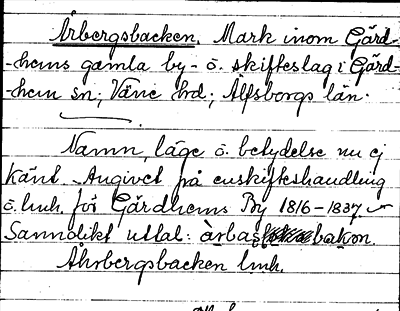 Årbergsbacken. Mark inom Gärd-
-hems gamla by- o. skifteslag i Gärd-
-hem sn; Väne hrd; Älfsborgs län.
Namn, läge o. betydelse nu ej
känt. Angivet på enskifteshandling
o. lmh. för Gärdhems By 1816-1837.
Sanndikt uttal: àrbas bakon.
Åhrbergsbacken lmh.